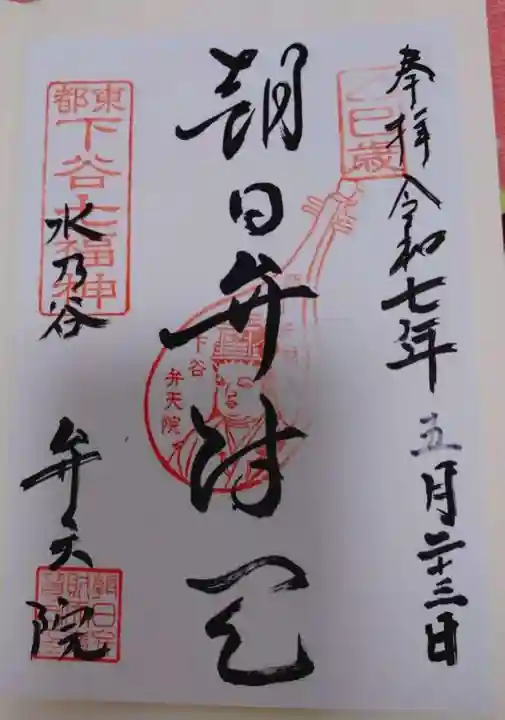 奉拝 令和七年 五月二十三日
乙巳歳
朝日弁財天
下谷
弁天院
東都
下谷七福神
水乃谷 弁天院